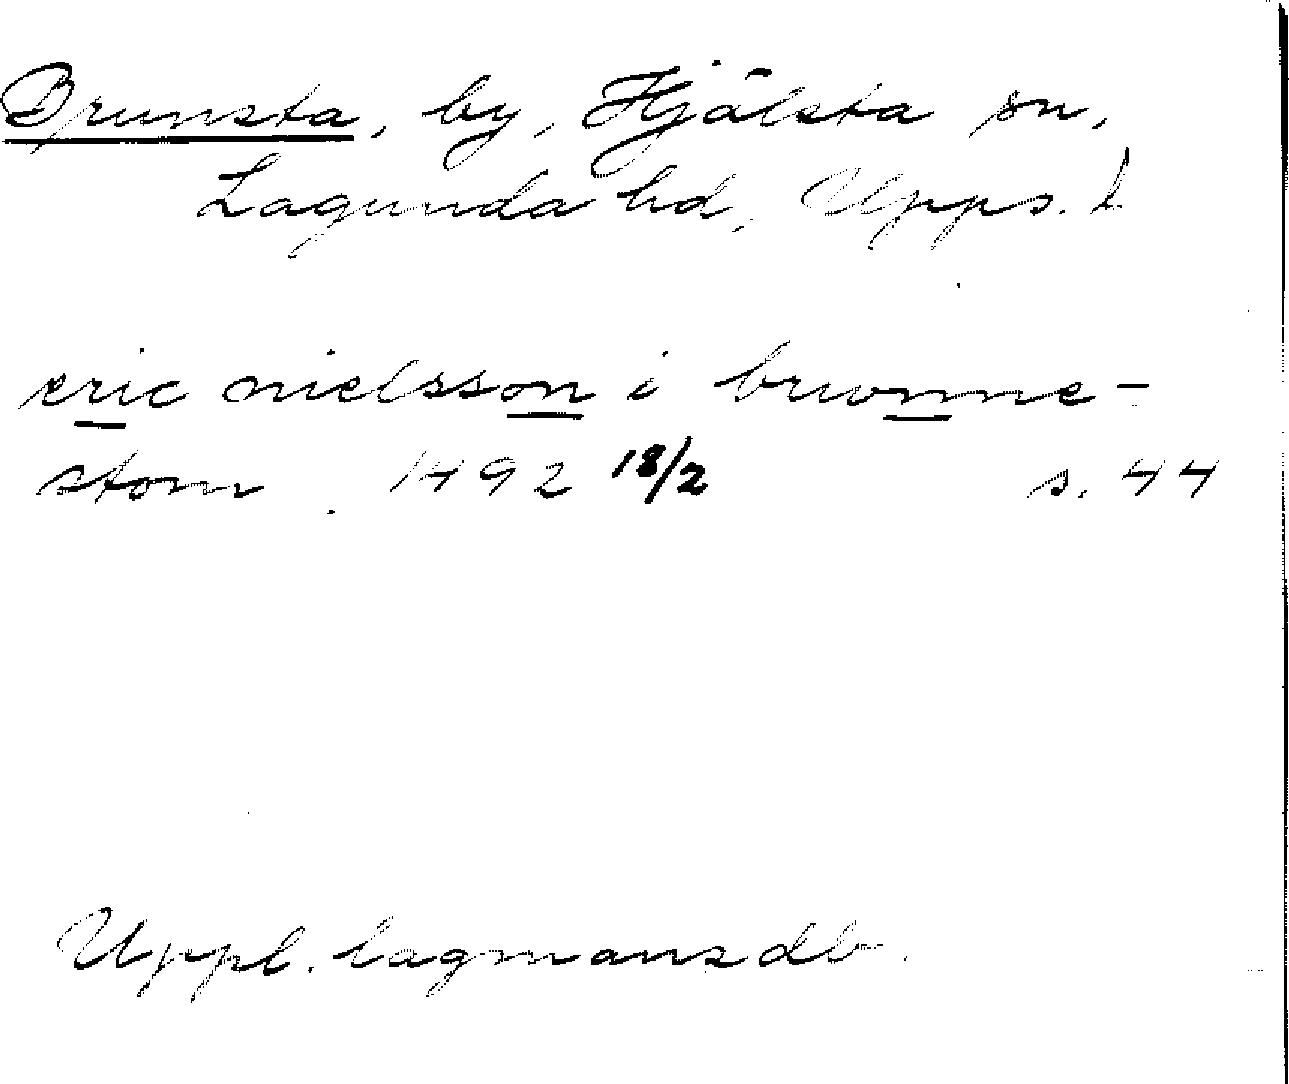 Brunsta, by, Hjälsta sn,
Lagunda hd, Upps. l
eric nielsson i brwnne-
stom. 1492 18/2 s. 44
Uppl. lagmansdb.